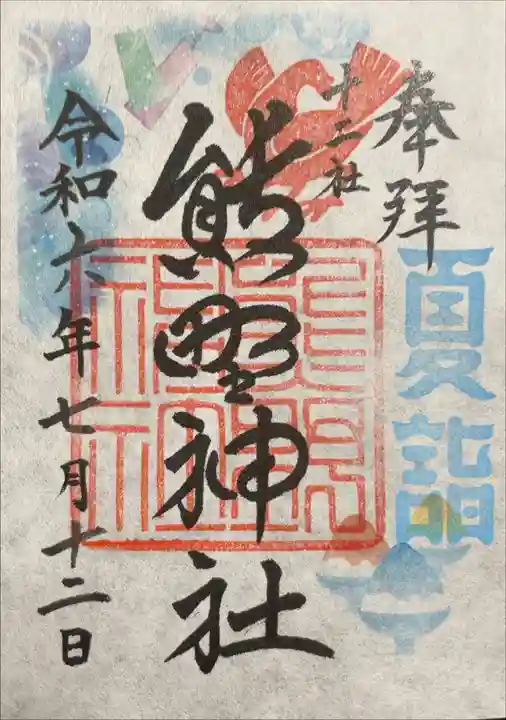 奉拝
夏詣
十二社
熊野神社
令和六年七月十二日